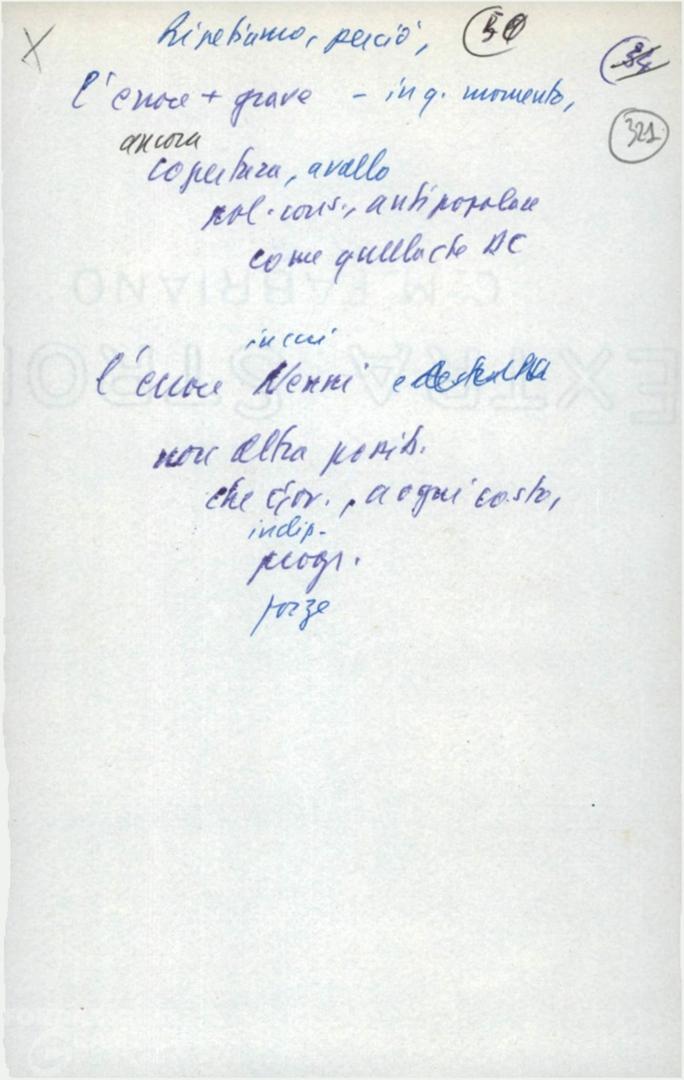 X
Ripetiamo, perciò,
50
34
l'errore + grave - in q. momento,
321
ancora
copertura, avallo
pol. cons., antipopolare
come quella che DC
in cui
l'errore Nenni e
non altra possib.
che giov., a ogni costo,
indip.
progr.
forze
C.M FABRIANO
EXTRA STRO